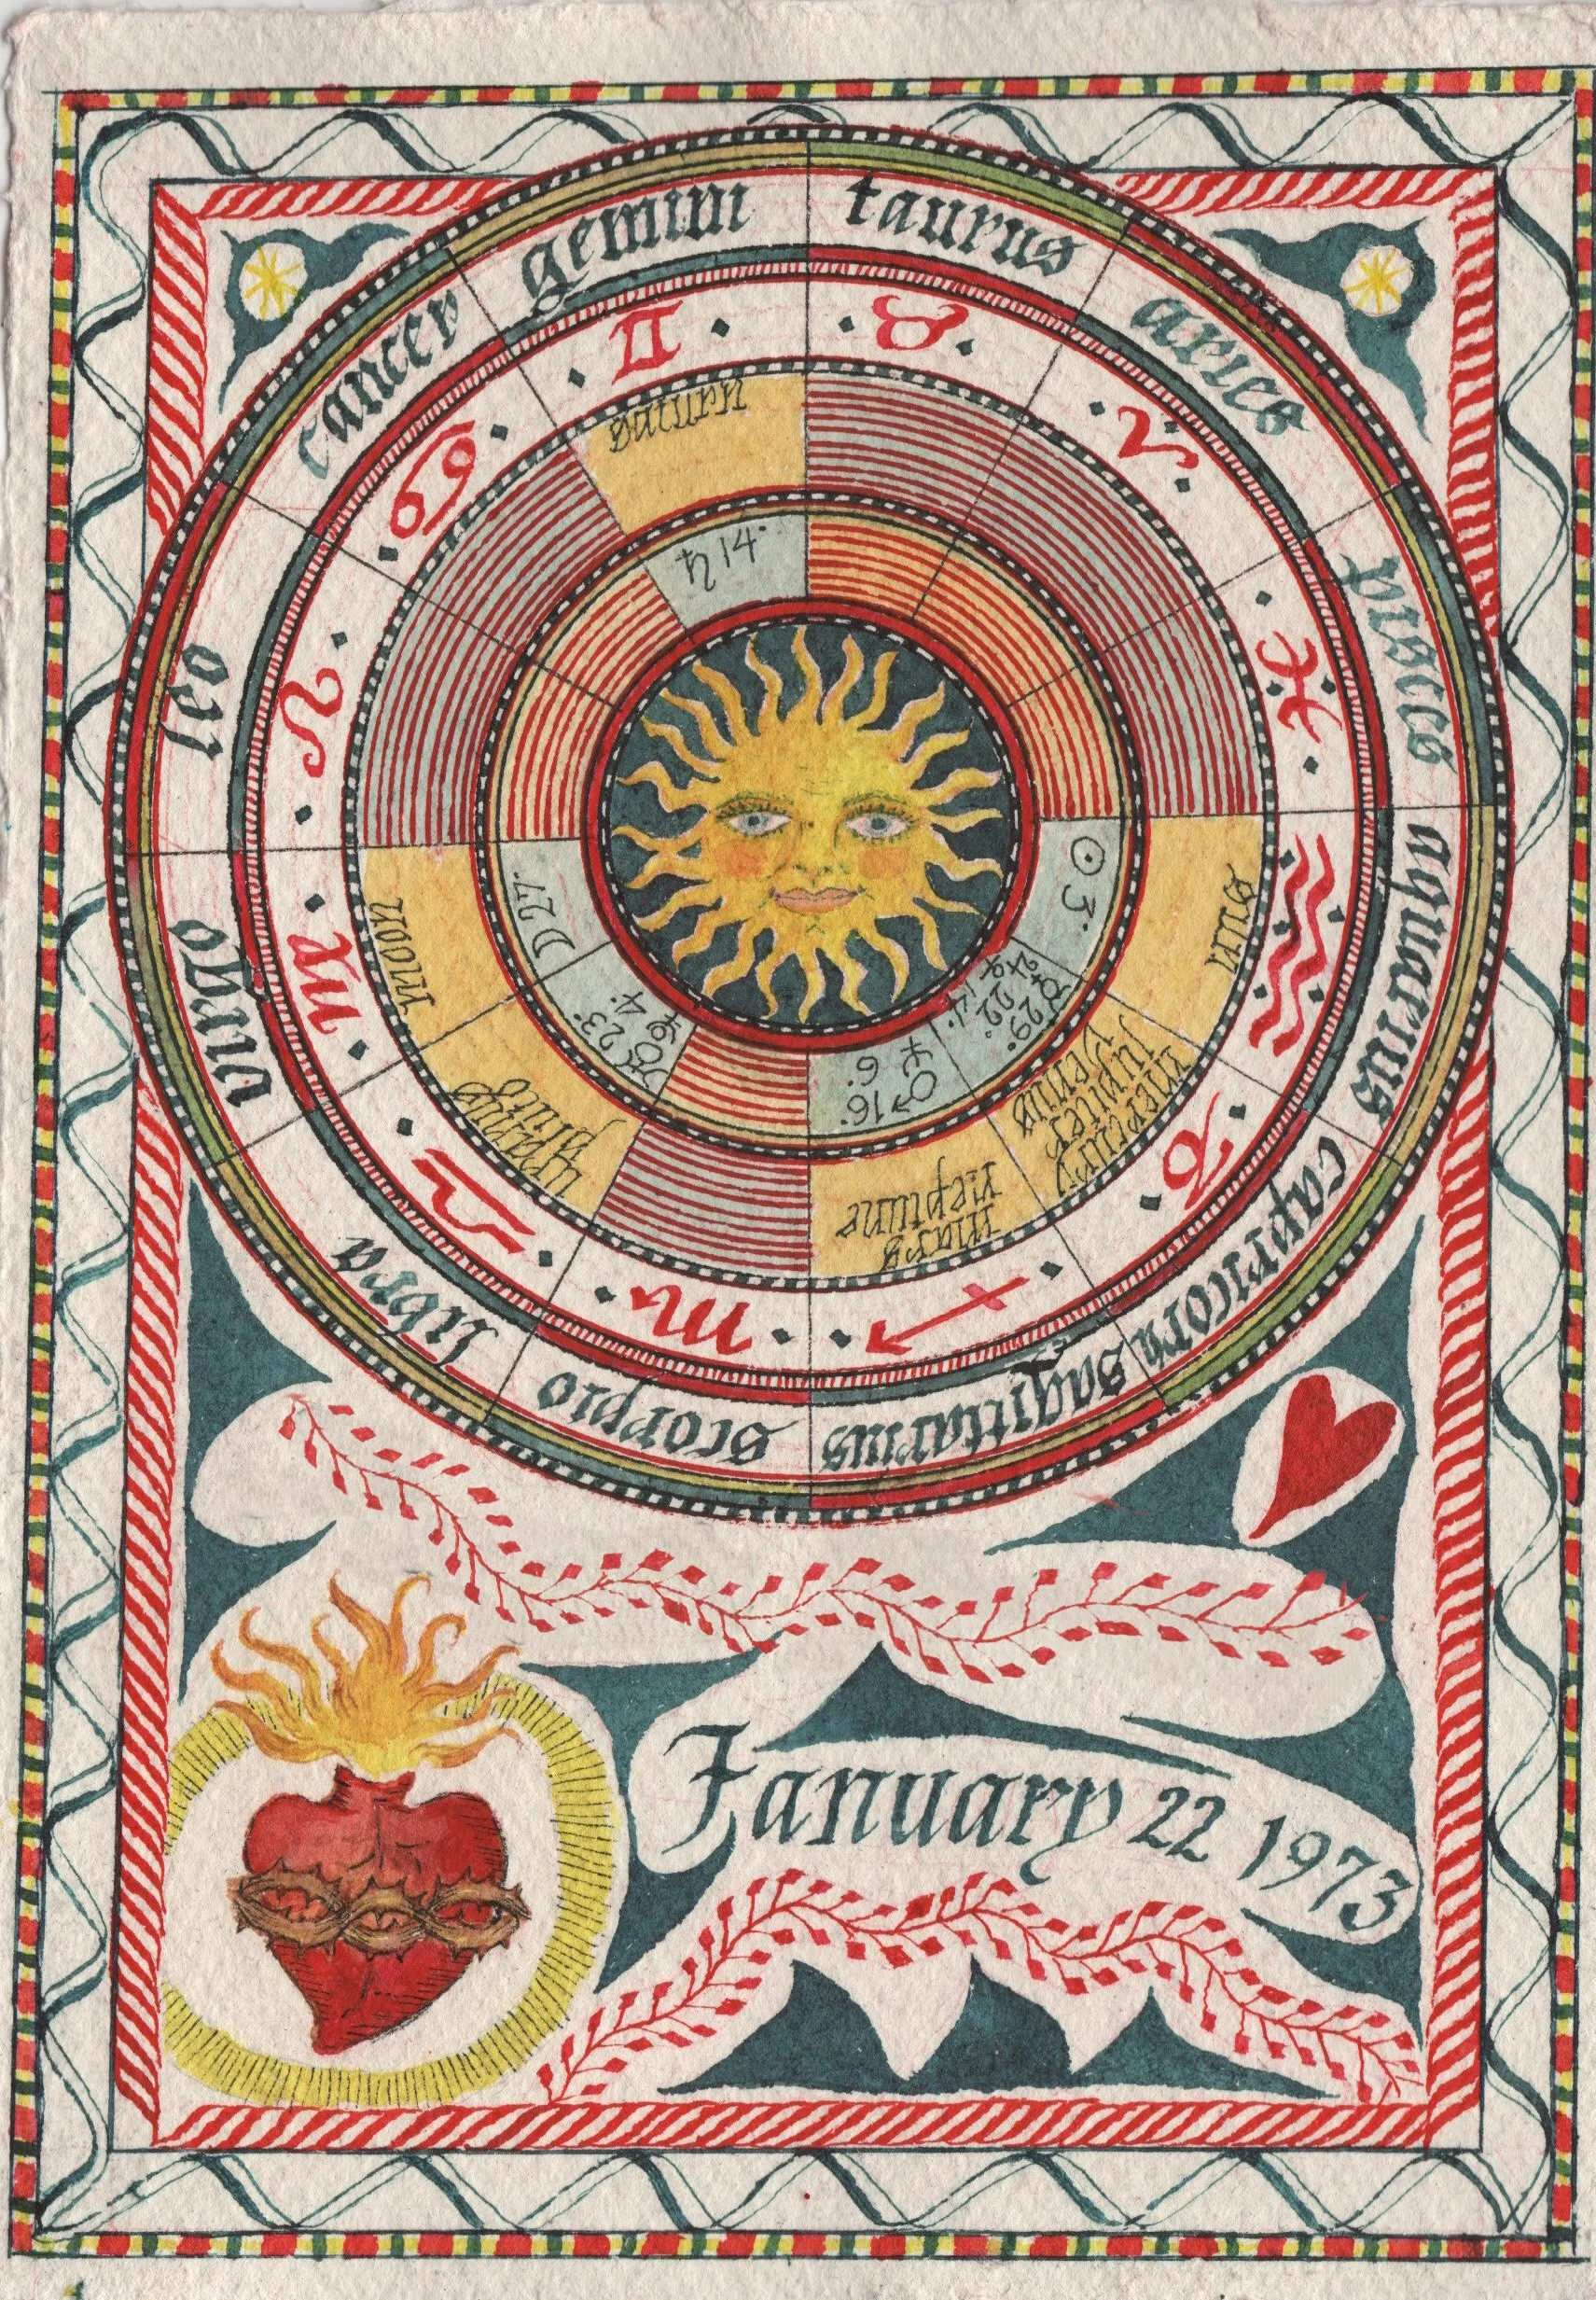 taurus
aries
pisces
aquarius
capricorn
sagittarius
scorpio
libra
virgo
leo
cancer
gemini
♉
♈
♓
♒
♑
♐
♏
♎
♍
♌
♋
♊
saturn
♄ 14°
sun
☉ 3°
mercury
jupiter
venus
☿ 29°
♃ 22°
♀ 14°
mars
neptune
♂ 16°
♆ 6°
uranus
pluto
♅ 23°
♇ 4°
moon
☽ 27°
January 22 1973